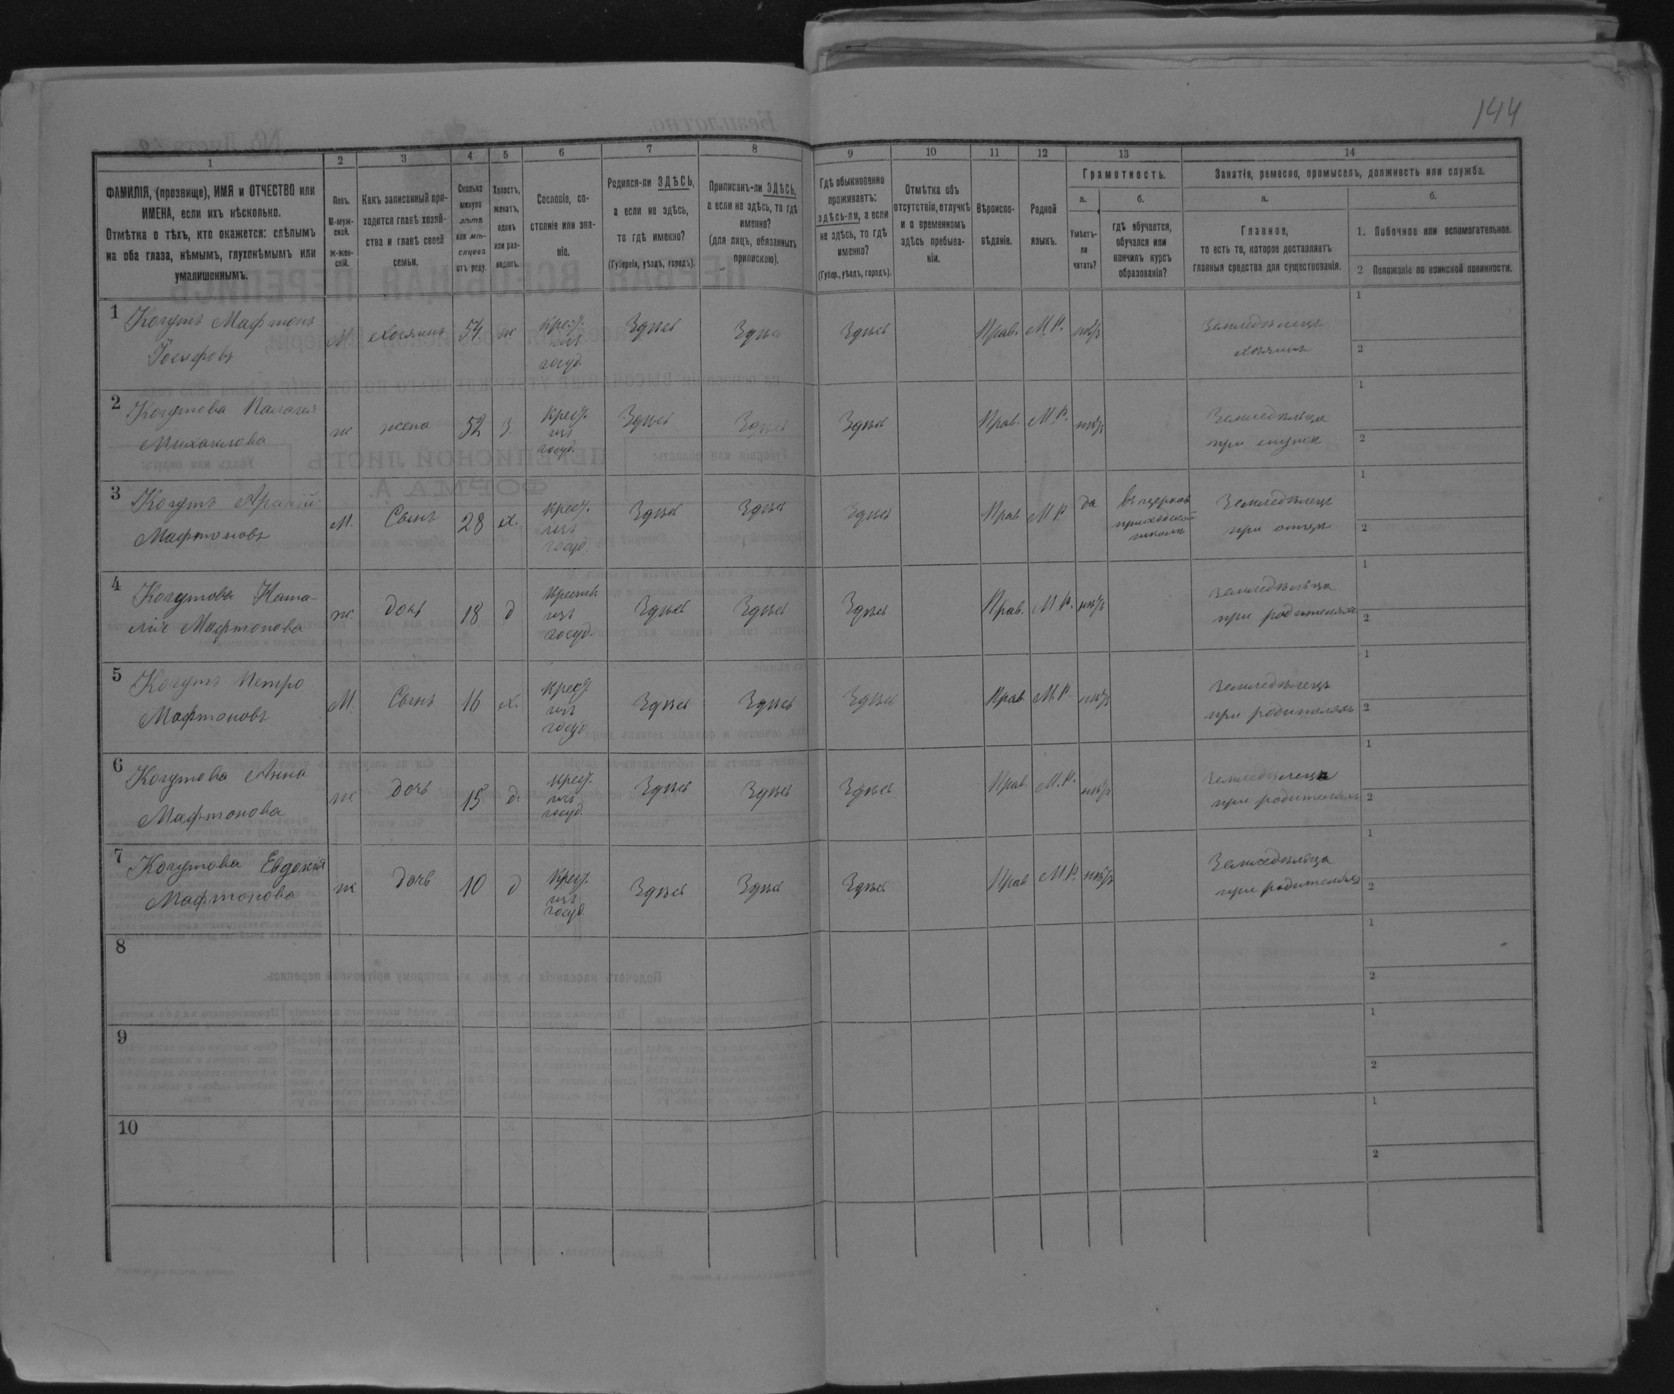 144
1 2 3 4 5 6 7 8 9 10 11 12 13 14
ФАМИЛІЯ, (прозвище), ИМЯ и ОТЧЕСТВО или
ИМЕНА, если ихъ нѣсколько.
Отмѣтка о тѣхъ, кто окажется: слѣпымъ
на оба глаза, нѣмымъ, глухонѣмымъ или
умалишеннымъ.
Полъ.
М-муж-
ской.
Ж-жен-
скій.
Какъ записанный при-
ходится главѣ хозяй-
ства и главѣ своей
семьи.
Сколько
минуло
лѣтъ
или мѣ-
сяцевъ
отъ роду.
Холостъ,
женатъ,
вдовъ
или раз-
веденъ.
Сословіе, со-
стояніе или зва-
ніе.
Родился-ли ЗДѢСЬ,
а если не здѣсь,
то гдѣ именно?
(Губернія, уѣздъ, городъ).
Приписанъ-ли ЗДѢСЬ,
а если не здѣсь, то гдѣ
именно?
(для лицъ, обязанныхъ
припискою).
Гдѣ обыкновенно
проживаетъ:
здѣсь-ли, а если
не здѣсь, то гдѣ
именно?
(Губер., уѣздъ, городъ).
Отмѣтка объ
отсутствіи, отлучкѣ
и о временномъ
здѣсь пребыва-
ніи.
Вѣроиспо-
вѣданіе.
Родной
языкъ.
Грамотность.
а.
Умѣетъ-
ли
читать?
б.
гдѣ обучается,
обучался или
кончилъ курсъ
образованія?
Занятіе, ремесло, промыселъ, должность или служба.
а.
Главное,
то есть то, которое доставляетъ
главныя средства для существованія.
б.
1. Побочное или вспомогательное.
2 Положеніе по воинской повинности.
1 Когутъ Мафтонъ
Іосифовъ
М. хозяинъ 54 ж крест.
изъ
госуд.
Здѣсь Здѣсь Здѣсь Прав. М.Р. нѣт
Земледѣлецъ
хозяинъ
1
2
2 Когутова Палагея
Михаилова
ж жена 52 З. крест.
изъ
госуд.
Здѣсь Здѣсь Здѣсь Прав. М.Р. нѣт
Земледѣлица
при мужѣ
1
2
3 Когутъ
Мафтоновъ
М. Сынъ 28 х. крест.
изъ
госуд.
Здѣсь Здѣсь Здѣсь Прав М.Р. да
въ церков
приходской
школѣ
Земледѣлецъ
при отцѣ
1
2
4 Когутова Ната-
лія Мафтонова
ж. дочь 18 д крестъ
изъ
госуд.
Здѣсь Здѣсь Здѣсь Прав. М.Р. нѣт
Земледѣлица
при родителяхъ
1
2
5 Когутъ Петро
Мафтоновъ
М. Сынъ 16 х. крест.
изъ
госуд.
Здѣсь Здѣсь Здѣсь Прав. М.Р. нѣт
Земледѣлецъ
при родителяхъ
1
2
6 Когутова Анна
Мафтонова
ж дочь 15 д. крест.
изъ
госуд.
Здѣсь Здѣсь Здѣсь Прав. М.Р. нѣт
Земледѣлеца
при родителяхъ
1
2
7 Когутова Евдокія
Мафтонова
ж дочь 10 д крест.
изъ
госуд.
Здѣсь Здѣсь Здѣсь Прав М.Р. нѣт
Земледѣлица
при родителяхъ
1
2
8
1
2
9
1
2
10
1
2